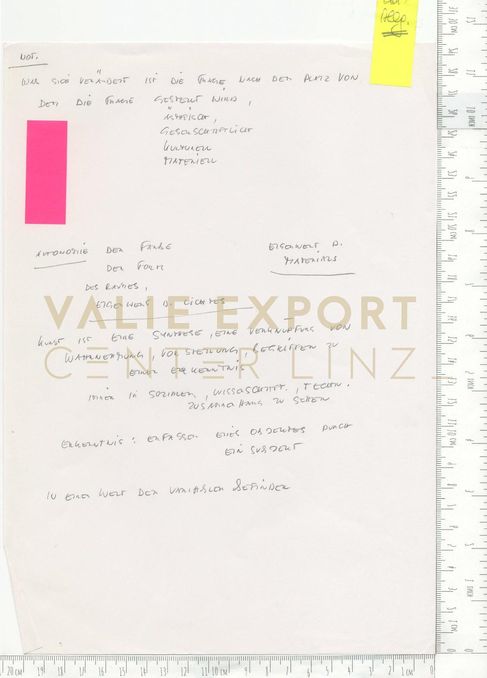 NOT.
WAS SICH VERÄNDERT IST DIE FRAGE NACH DEM PLATZ VON
DEM DIE FRAGE GESTELLT WIRD,
ÄSTHETISCH,
GESELLSCHAFTLICH
KULTURELL
MATERIELL
AUTONOMIE DER FARBE
DER FORM
DES RAUMES,
EIGENWERT D. LICHTES
EIGENWERT D.
MATERIALS
VALIE EXPORT
CENTER LINZ_
KUNST IST EINE SYNTHESE, EINE VERKNÜPFUNG VON
WAHRNEHMUNG, VORSTELLUNG, BEGRIFFEN ZU
EINER ERKENNTNIS
IMMER IN SOZIALEN, WISSENSCHAFT., TECHN.
ZUSAMMENHANG ZU SEHEN
ERKENNTNIS: ERFASSEN EINES OBJEKTES DURCH
EIN SUBJEKT
IN EINER WELT DER VARIABLEN BEFINDEN